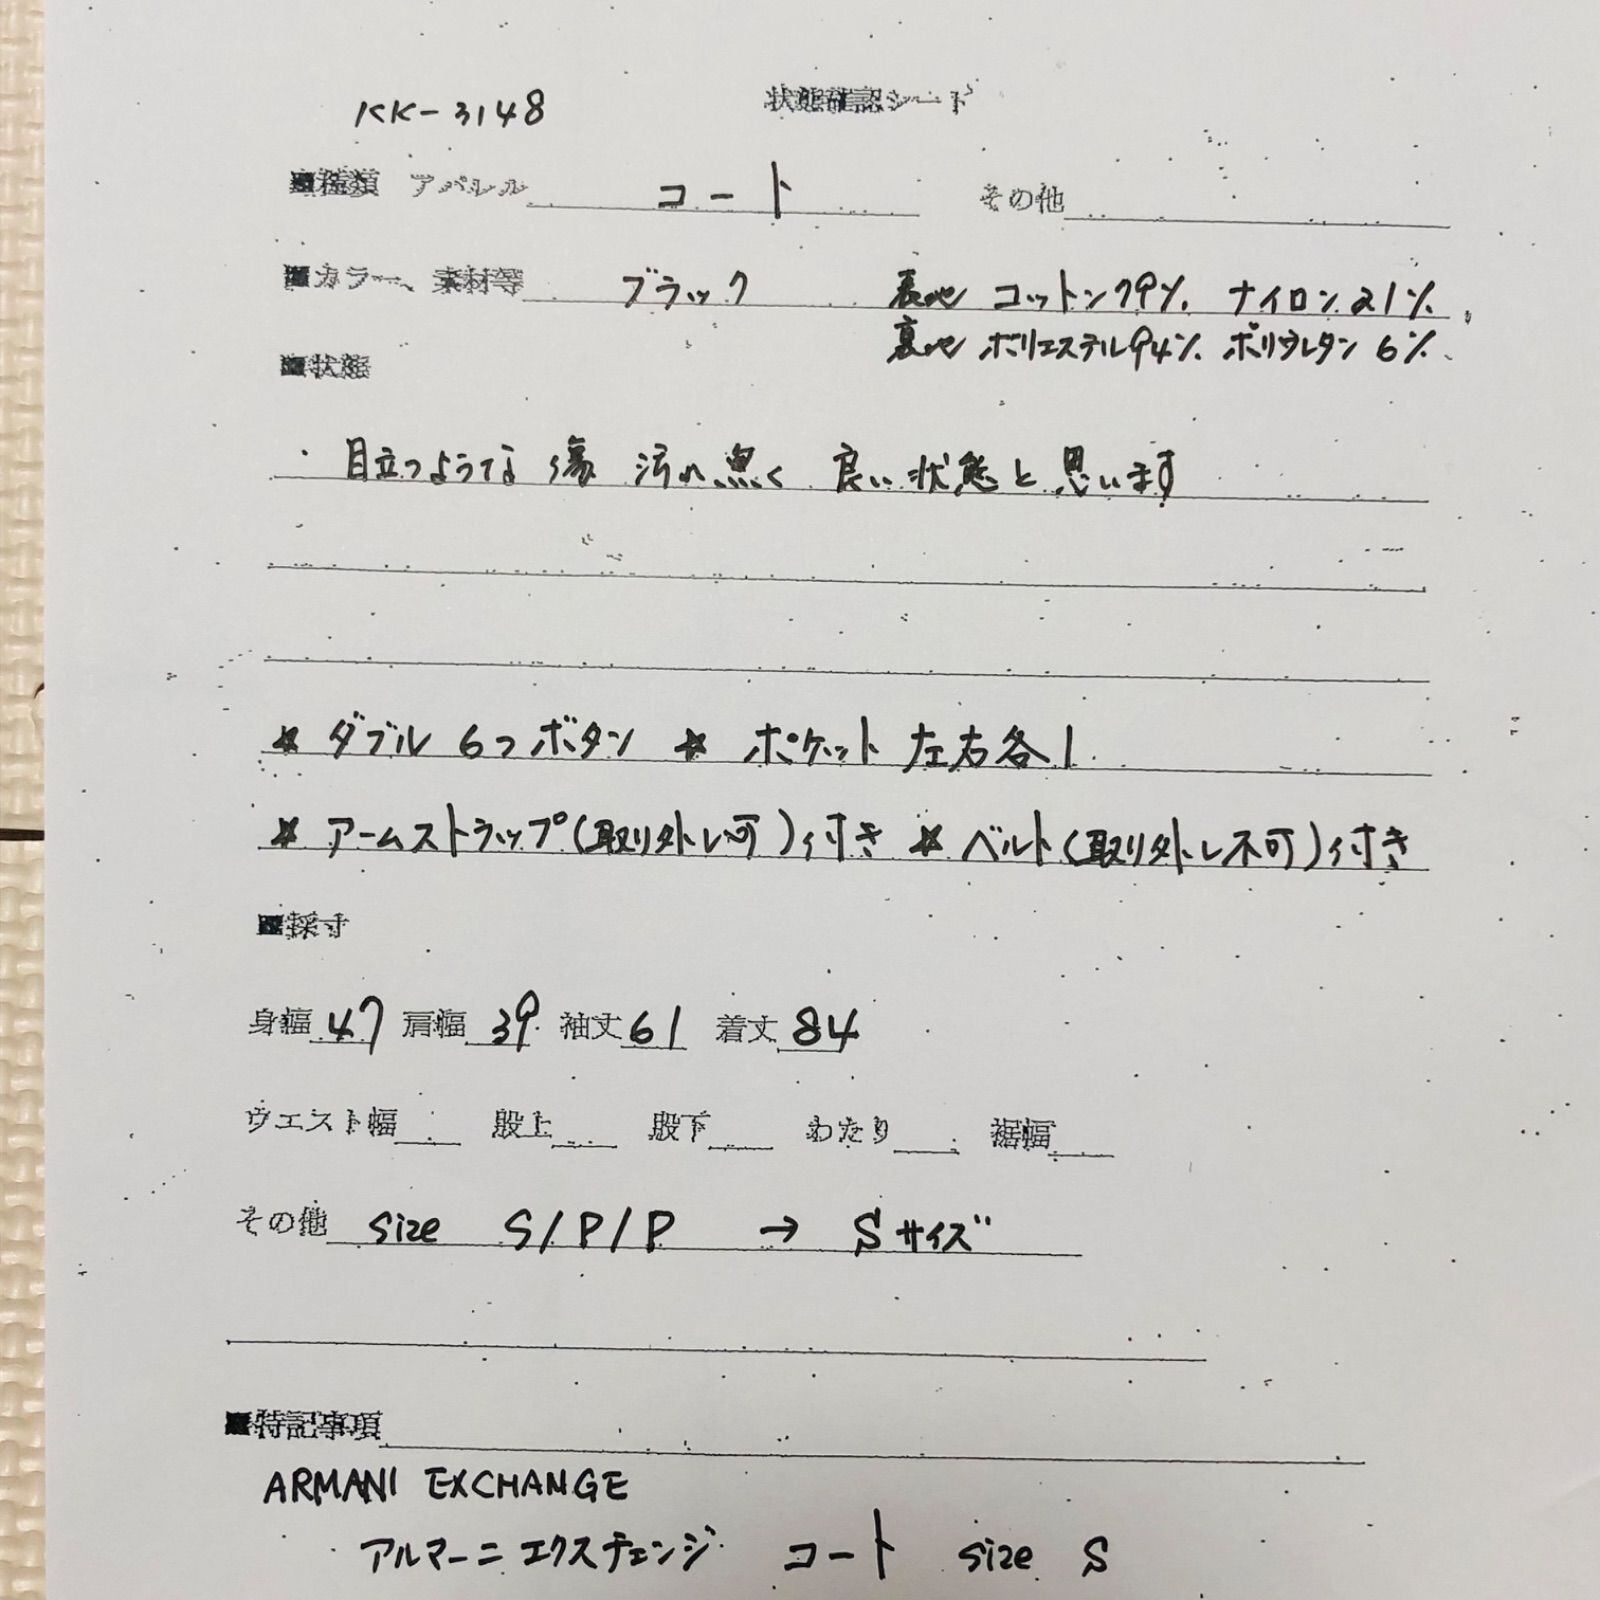 KK-3148 状態確認シート
■種類 アパレル コート その他
■カラー、素材等 ブラック 表地 コットン79% ナイロン21%
裏地 ポリエステル94% ポリウレタン6%
■状態
・目立つような 傷 汚れ 無く 良い状態と思います
★ ダブル 6つボタン ★ ポケット 左右各1
★ アームストラップ(取り外し可)付き ★ ベルト(取り外し不可)付き
■採寸
身幅 47 肩幅 39 袖丈 61 着丈 84
ウエスト幅 股上 股下 わたり 裾幅
その他 size S/P/P → Sサイズ
■特記事項
ARMANI EXCHANGE
アルマーニ エクスチェンジ コート size S